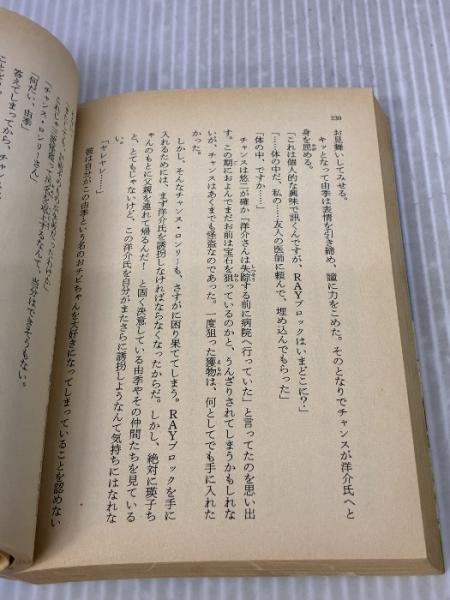 230
お見舞いしてみせる。
キッとなって由季は表情を引き締め、瞳に力をこめた。そのとなりでチャンスが洋介氏へと
身を屈める。
「これは個人的な興味で訊くんですが、ＲＡＹブロックはいまどこに？」
「体の中だ、私の……友人の医師に頼んで、埋め込んでもらった」
「体の中、ですか……」
チャンスは悠二が確か「洋介さんは失踪する前に病院へ行っていた」と言ってたのを思い出
す。この期におよんでまだお前は宝石を狙っているのかと、うんざりされてしまうかもしれな
いが、チャンスはあくまでも怪盗なのであった。一度狙った獲物は、何としてでも手に入れた
かった。
しかし、そんなチャンス・ロンリーも、さすがに困り果ててしまう。ＲＡＹブロックを手に
入れるためには、まず洋介氏を誘拐しなければならなくなったからだ。しかし、絶対に瑛子ち
ゃんのもとに父親を連れて帰るんだ！　と固く決意している由季やその仲間たちを見ている
と、とてもじゃないけど、この洋介氏を自分がまたさらに誘拐しようなんて気持ちにはなれな
い。
「ヤレヤレ……」
彼は自分がこの由季という名のおチビちゃんを大好きになってしまっていることを認めない
当分はできそうもない。
「チャンス・ロンリーさん」
「何だい、由季」
答えてしまってから、チャン